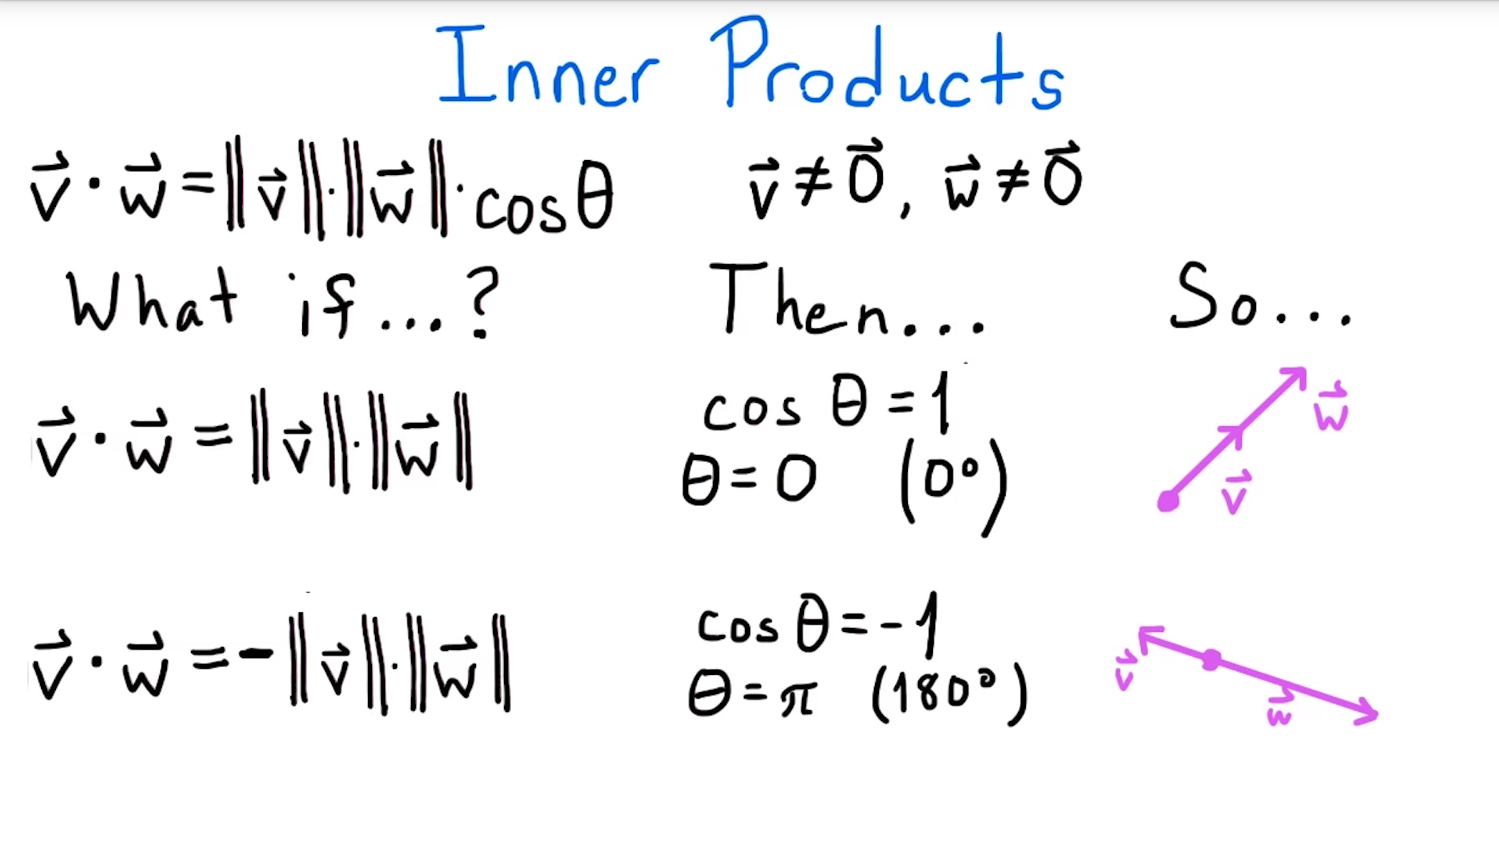 Inner Products
v⃗ · w⃗ = ‖v⃗‖·‖w⃗‖·cosθ    v⃗ ≠ 0⃗, w⃗ ≠ 0⃗
What if...?    Then...    So...
v⃗ · w⃗ = ‖v⃗‖·‖w⃗‖    cos θ = 1
θ = 0 (0°)
w⃗
v⃗
v⃗ · w⃗ = -‖v⃗‖·‖w⃗‖    cos θ = -1
θ = π (180°)
v⃗
w⃗